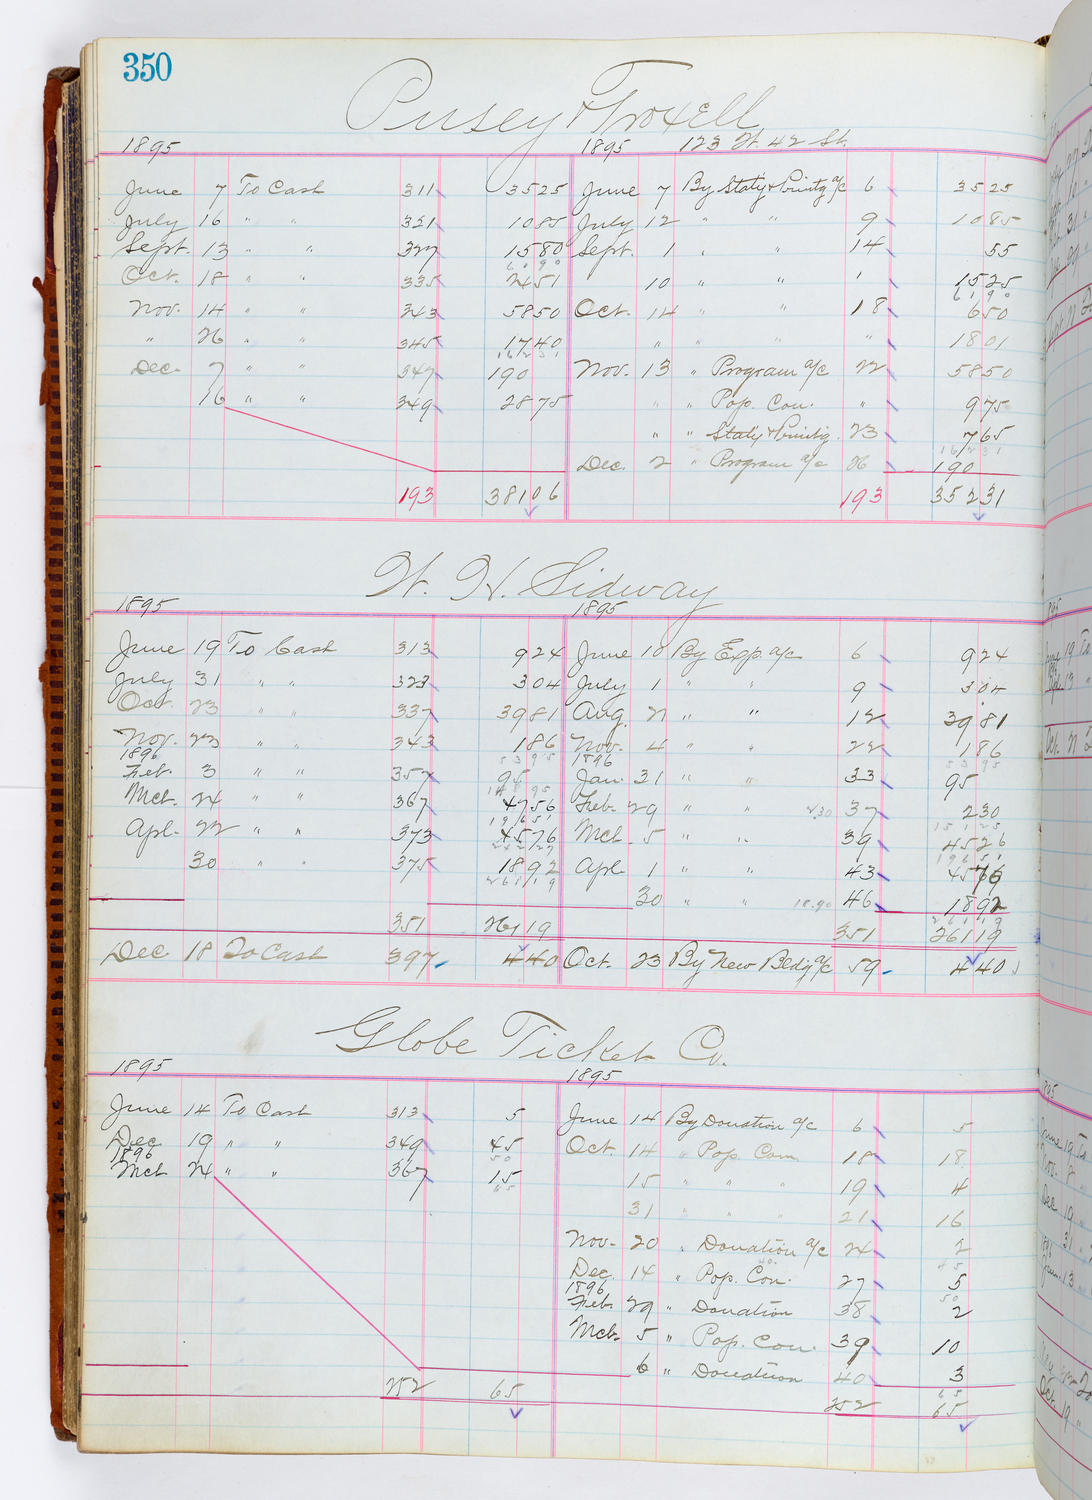 350
Pusey & Troxell
1895 1895 123 W. 42 St.
June 7 To Cash 311 35 25 June 7 By Staty & Printg a/c 6 35 25
July 16 " " 321 10 85 July 12 " " 9 10 85
Sept. 13 " " 327 15 80 Sept. 1 " " 14 55
61 90
Oct. 18 " " 335 24 51 10 " " " 15 25
61 90
Nov. 14 " " 343 58 50 Oct. 14 " " 18 6 50
" 26 " " 345 17 40 " " " " 18 01
162 31
Dec. 7 " " 347 190 Nov. 13 " Program a/c 22 58 50
16 " " 349 28 75 " " Pop. Con. " 9 75
" " Staty & Printg. 23 7 65
162 31
Dec. 2 " Program a/c 26 190
193 381 06 193 352 31
W. H. Sidway
1895 1895
June 19 To Cash 313 9 24 June 10 By Exp. a/c 6 9 24
July 31 " " 323 3 04 July 1 " " 9 3 04
Oct. 23 " " 337 39 81 Aug. 21 " " 12 39 81
Nov. 23 " " 343 1 86 Nov. 4 " " 22 1 86
53 95 53 95
1896 1896
Feb. 3 " " 357 95 Jan. 31 " " 33 95
148 95
Mch. 24 " " 367 47 56 Feb. 29 " " 2.30 37 2 30
196 51 151 25
Apl. 22 " " 373 45 76 Mch. 5 " " 39 45 26
242 27 196 51
30 " " 375 18 92 Apl. 1 " " 43 45 76
261 19
30 " " 18.90 46 18 92
261 19
351 261 19 351 261 19
Dec. 18 To Cash 397 4 40 Oct. 23 By New Bldg a/c 59 4 40
Globe Ticket Co.
1895 1895
June 14 To Cash 313 5 June 14 By Donation a/c 6 5
Dec 19 " " 349 45 Oct 14 " Pop. Con. 18 18
50
1896
Mch 24 " " 367 15 15 " " " 19 4
65
31 " " " 21 16
Nov. 20 " Donation a/c 24 2
45
Dec. 14 " Pop. Con. 27 5
50
1896
Feb. 29 " Donation 38 2
Mch. 5 " Pop. Con. 39 10
6 " Donation 40 3
65
252 65 252 65